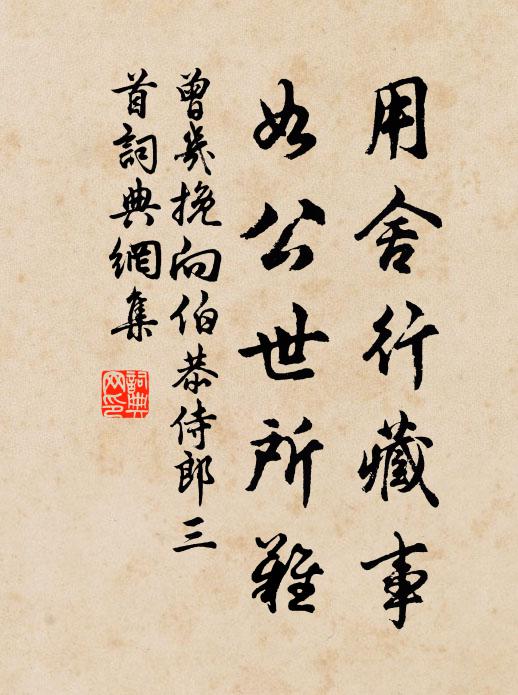 用舍行藏事
如公世所難
曾幾挽向伯恭侍郎三
首詞典網集
詞典
网印